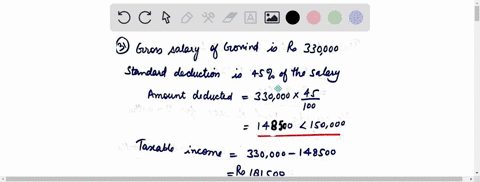 31) Gross salary of Govind is Rs 330,000
Standard deduction is 45% of the salary
Amount deducted = 330,000 × 45/100
= 148500 < 150,000
Taxable income = 330,000 - 148500
= Rs 181500